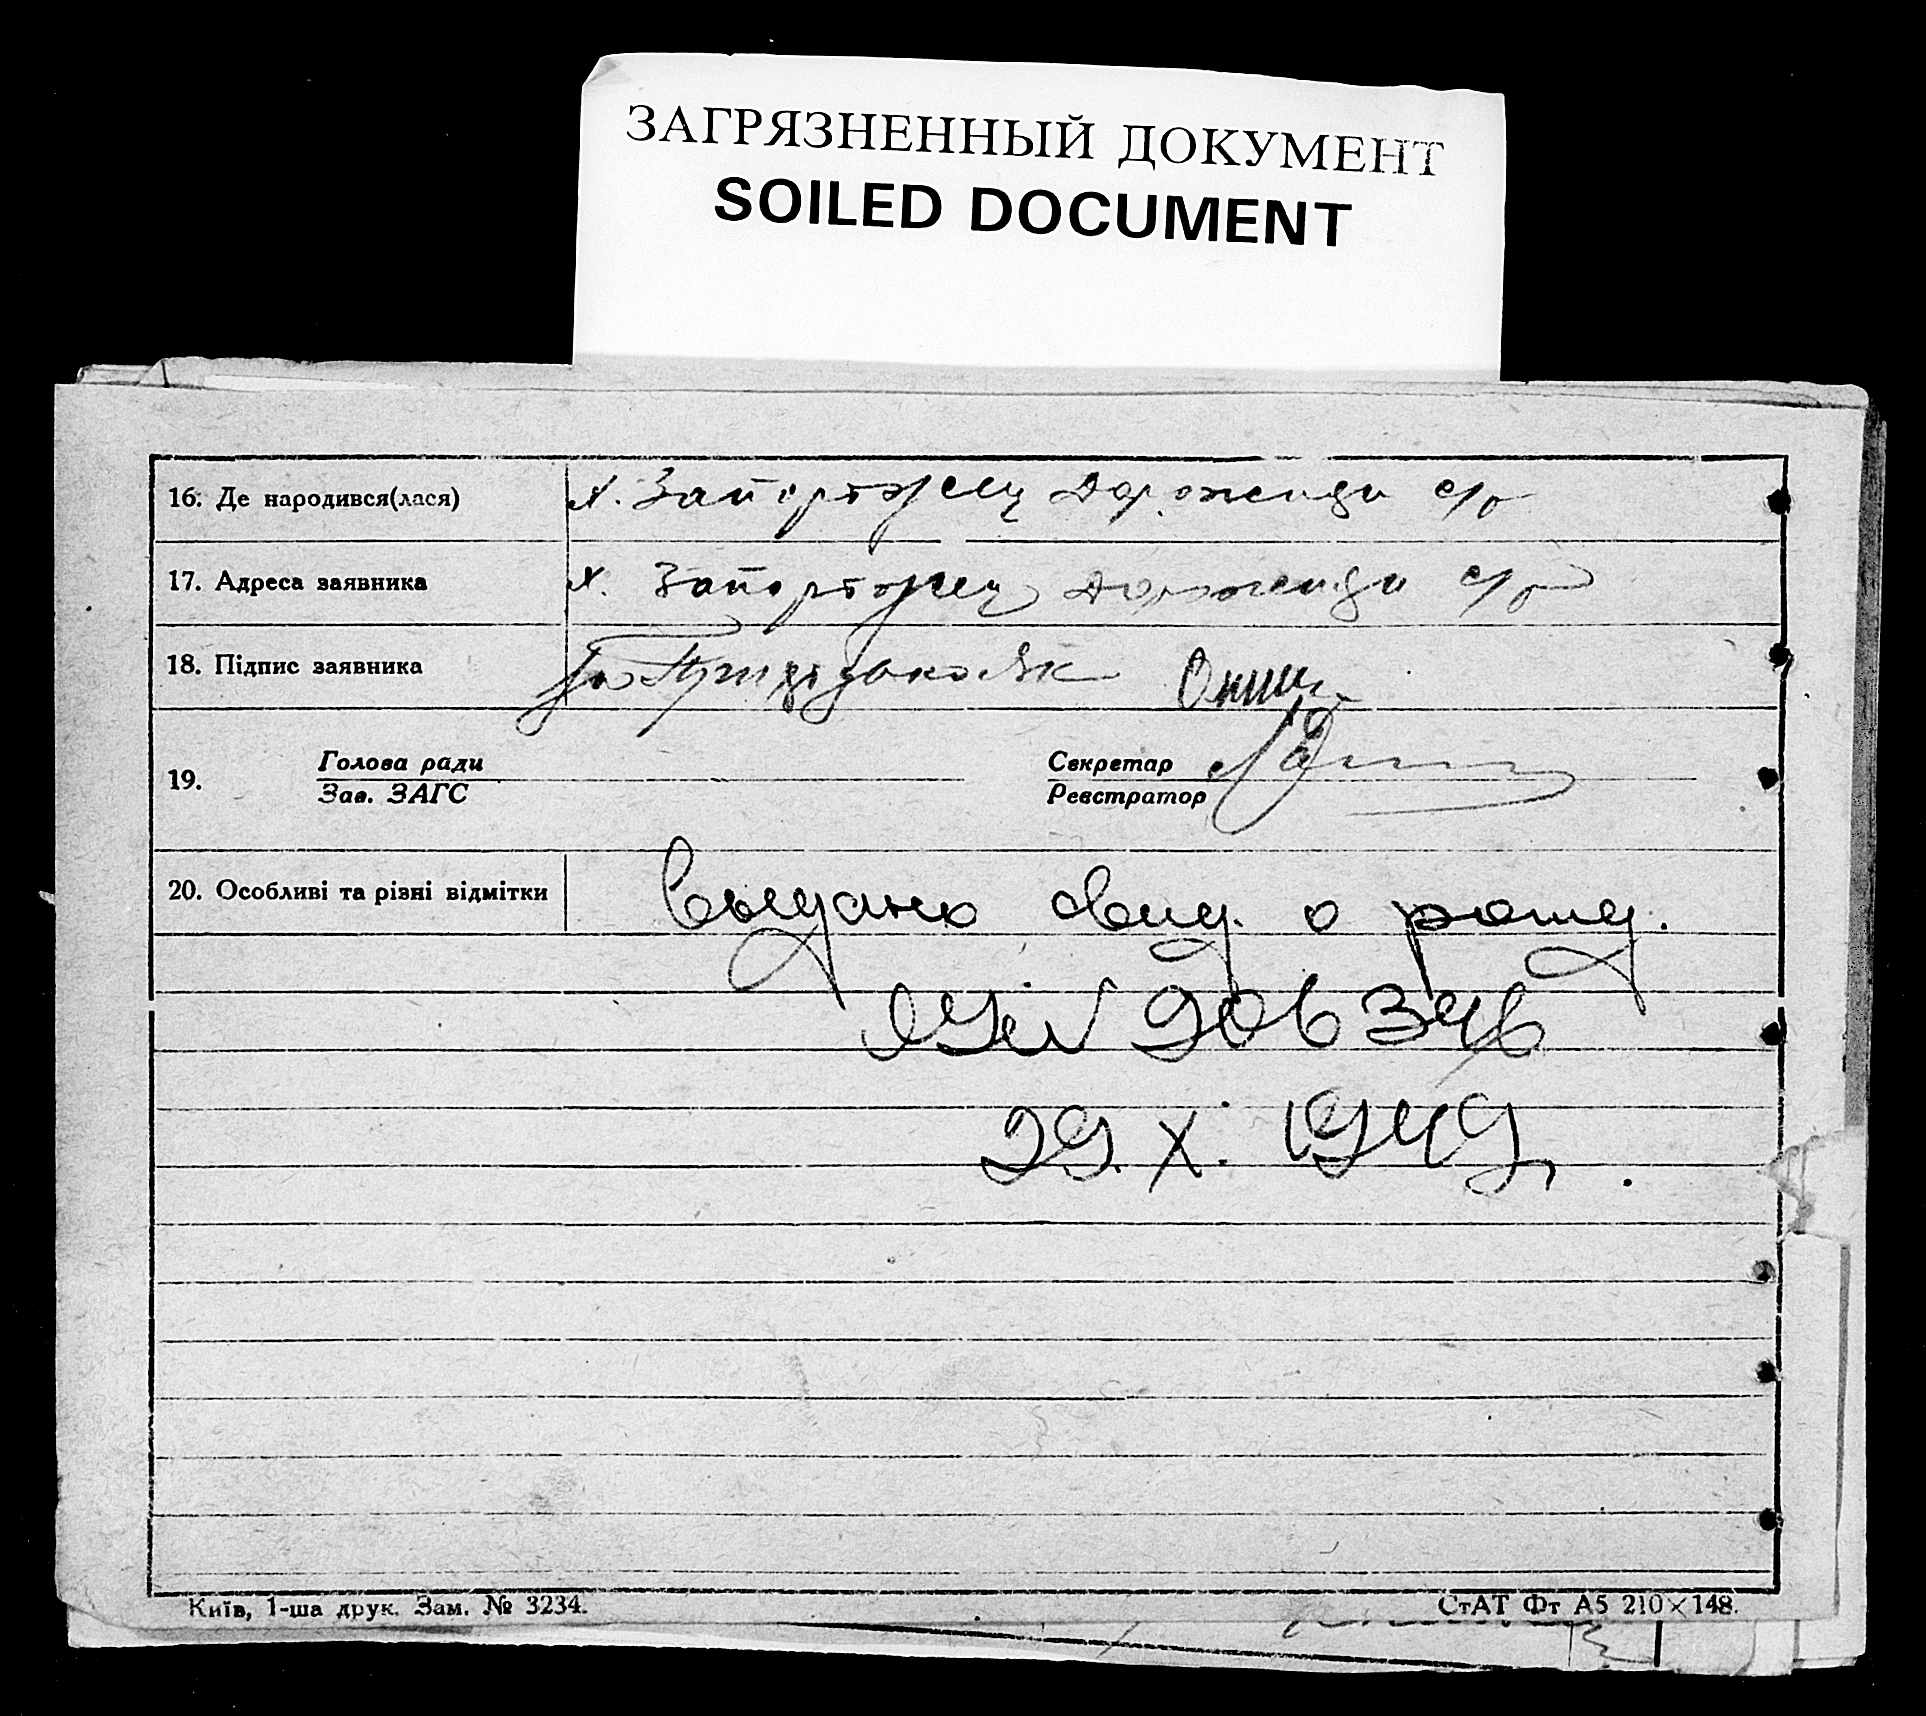 ЗАГРЯЗНЕННЫЙ ДОКУМЕНТ
SOILED DOCUMENT
16. Де народився(лася) х. Запорожец с/р
17. Адреса заявника х. Запорожец с/р
18. Підпис заявника
19. Голова ради Секретар
Зав. ЗАГС Реєстратор
20. Особливі та різні відмітки Выдано свид. о рожд.
906346
29. X. 1949
Київ, 1-ша друк. Зам. № 3234. СтАТ Фт А5 210×148.